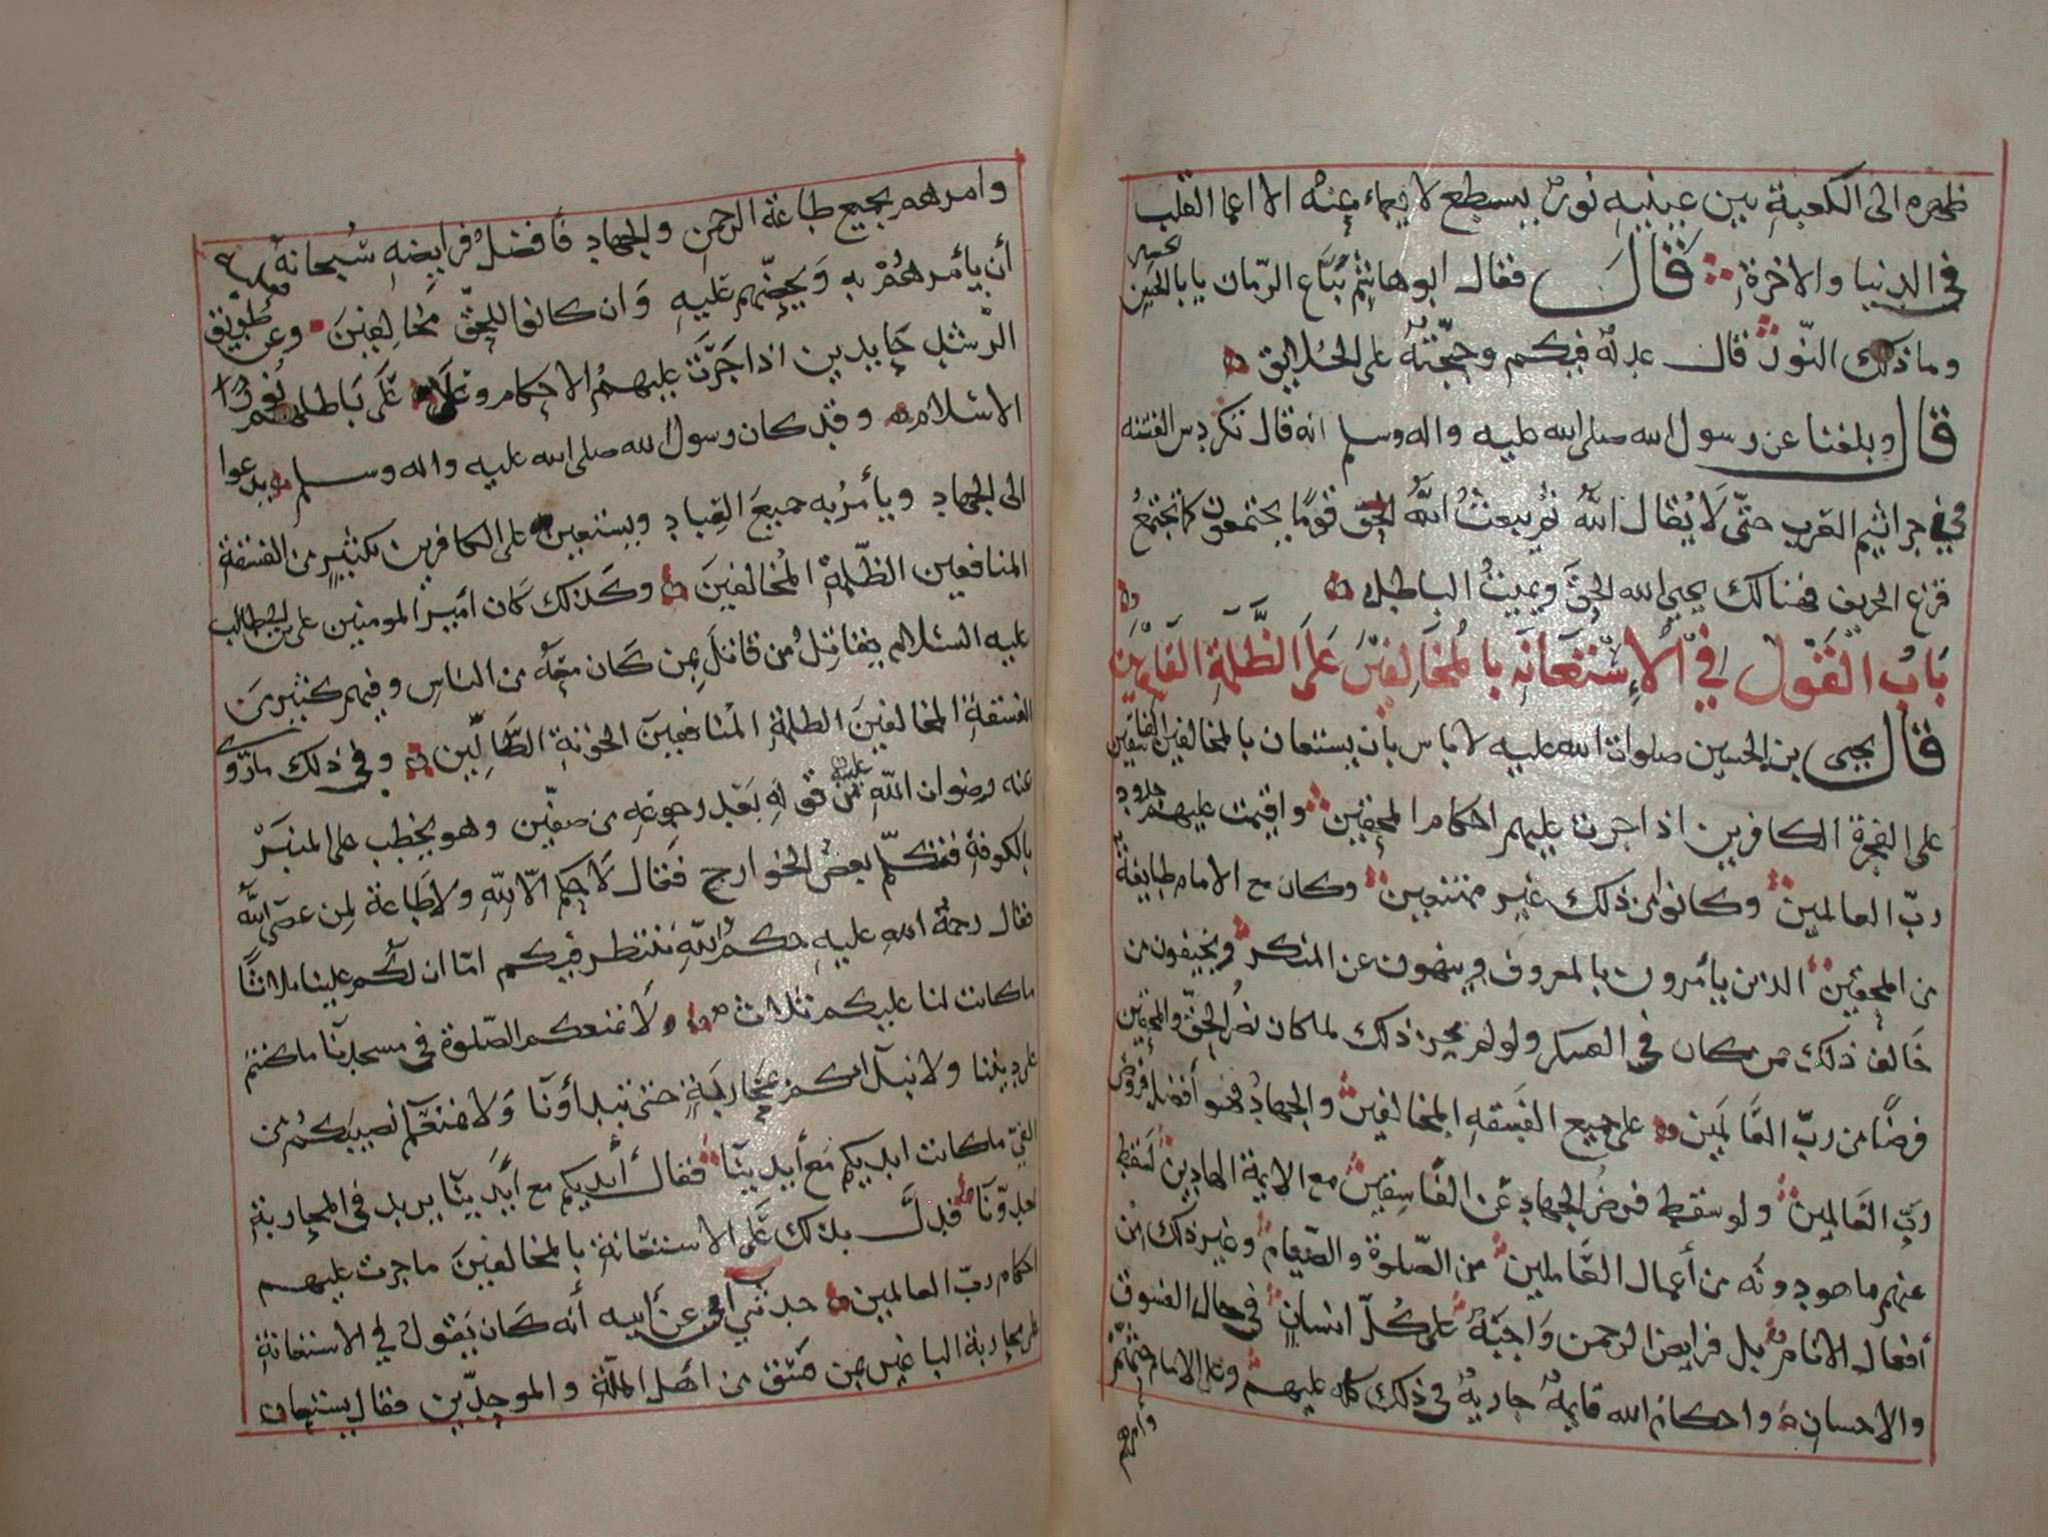 ظهره الى الكعبة بين عينيه نور يسطع لا يعماء عنه الا اعما القلب
في الدنيا والاخرة قال فقال ابو هاشم بياع الرمان يا با الحسين
وما ذلك النور قال عدله فيكم وحجته على الخلايق
قال وبلغنا عن رسول الله صلى الله عليه واله وسلم انه قال تكردس الفتنه
في جراثيم العرب حتى لا يقال الله ثم يبعث الله قوما يجتمعون كما تجتمع
قزع الخريف فهنالك يحيي الله الحق ويميت الباطل
باب القول في الاستعانه بالمخالفين على الظلمة
قال يحيى بن الحسين صلوات الله عليه لا باس بان يستعان بالمخالفين الفاسقين
على الفجرة الكافرين اذا جرت عليهم احكام المحقين واقيمت عليهم حدود
رب العالمين وكانوا في ذلك غير ممتنعين وكان مع الامام طايفة
من المحقين الذين يأمرون بالمعروف وينهون عن المنكر ويخيفون من
خالف ذلك من كان في العسكر ولو لم يجز ذلك لما كان نصر الحق والمحقين
فرضا من رب العالمين على جميع الفسقه المخالفين والجهاد فهو أفضل فروض
رب العالمين ولو سقط فرض الجهاد عن الفاسقين مع الايمة الهادين لسقط
عنهم ما هو دونه من أعمال العاملين من الصلوة والصيام وغير ذلك من
أفعال الانام بل فرايض الرحمن واجبة على كل انسان في حال الفسوق
والاحسان واحكام الله قايمة جارية في ذلك كله عليهم وعلى الامام حثهم
وامرهم
وامرهم بجميع طاعة الرحمن والجهاد فأفضل فرايضه سبحانه
أن يأمرهم به ويحضهم عليه وان كانوا للحق مخالفين وعن طريق
الرشد حايدين اذا جرت عليهم الاحكام وعلا على باطلهم
الاسلام وقد كان رسول الله صلى الله عليه واله وسلم يدعوا
الى الجهاد ويأمر به جميع العباد ويستعين على الكافرين بكثير من الفسقة
المنافقين الظلمة المخالفين وكذلك كان أمير المومنين علي بن ابي طالب
عليه السلام يقاتل من قاتل بمن كان معه من الناس وفيهم كثير من
الفسقة المخالفين الظلمة المنافقين الخونة الظالمين وفي ذلك ما روى
عنه رضوان الله عليه من قوله بعد رجوعه من صفين وهو يخطب على المنبر
بالكوفة فتكلم بعض الخوارج فقال لا حكم الا لله ولا طاعة لمن عصى الله
فقال رحمة الله عليه حكم الله ننتظر فيكم اما ان لكم علينا ثلاثا
ما كانت لنا عليكم ثلاث ولا نمنعكم الصلوة في مسجدنا ما كنتم
على ديننا ولا نبدأكم بمحاربة حتى تبدأونا ولا نمنعكم نصيبكم من
الفيء ما كانت ايديكم مع أيدينا فقال أيديكم مع أيدينا يريد في المحاربة
لعدونا فدل بذلك على الاستعانة بالمخالفين ما جرت عليهم
احكام رب العالمين حدثني ابي عن أبيه أنه كان يقول في الاستعانة
على محاربة الباغين بمن فسق من اهل الملة والموحدين فقال يستعان